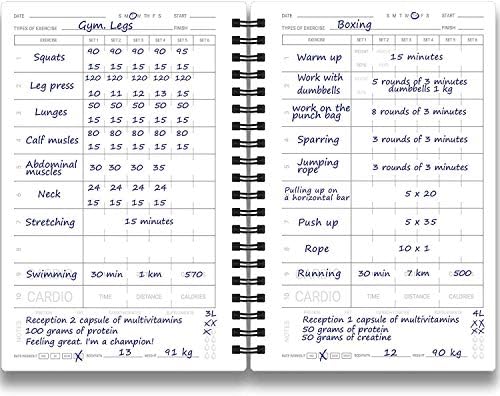 DATE S M T W T H F S START
TYPES OF EXERCISE Gym. Legs FINISH
EXERCISE SET 1 SET 2 SET 3 SET 4 SET 5 SET 6
1 Squats 90 90 90 90 95
15 15 15 15 15
2 Leg press 120 120 120 120 120
10 11 12 12 13 15
3 Lunges 50 50 50 50 50
15 15 15 15 15
4 Calf musles 80 80 80 80 80
15 15 15 15 15
5 Abdominal
muscles 30 30 30 35
6 Neck 24 24 24
15 15 15
7 Stretching 15 minutes
8
9 Swimming 30 min 1 km 570
10 CARDIO TIME DISTANCE CALORIES
NOTES
Reception 2 capsule of multivitamins 3L
100 grams of protein XX
Feeling great. I'm a champion! X
RATE WORKOUT X BODYFAT% 13 WEIGHT 91 kg
DATE S M T W T F S START
TYPES OF EXERCISE Boxing FINISH
EXERCISE SET 1 SET 2 SET 3 SET 4 SET 5 SET 6
1 Warm up 15 minutes
2 Work with
dumbbells 5 rounds of 3 minutes
dumbbells 1 kg
3 work on the
punch bag 8 rounds of 3 minutes
4 Sparring 3 rounds of 3 minutes
5 Jumping
rope 3 rounds of 3 minutes
Pulling up on
a horizontal bar 5 x 20
7 Push up 5 x 35
8 Rope 10 x 1
9 Running 30 min 7 km 500
10 CARDIO TIME DISTANCE CALORIES
NOTES
Reception 1 capsule of multivitamins 4L
50 grams of protein XX
50 grams of creatine XX
RATE WORKOUT X BODYFAT% 12 WEIGHT 90 kg